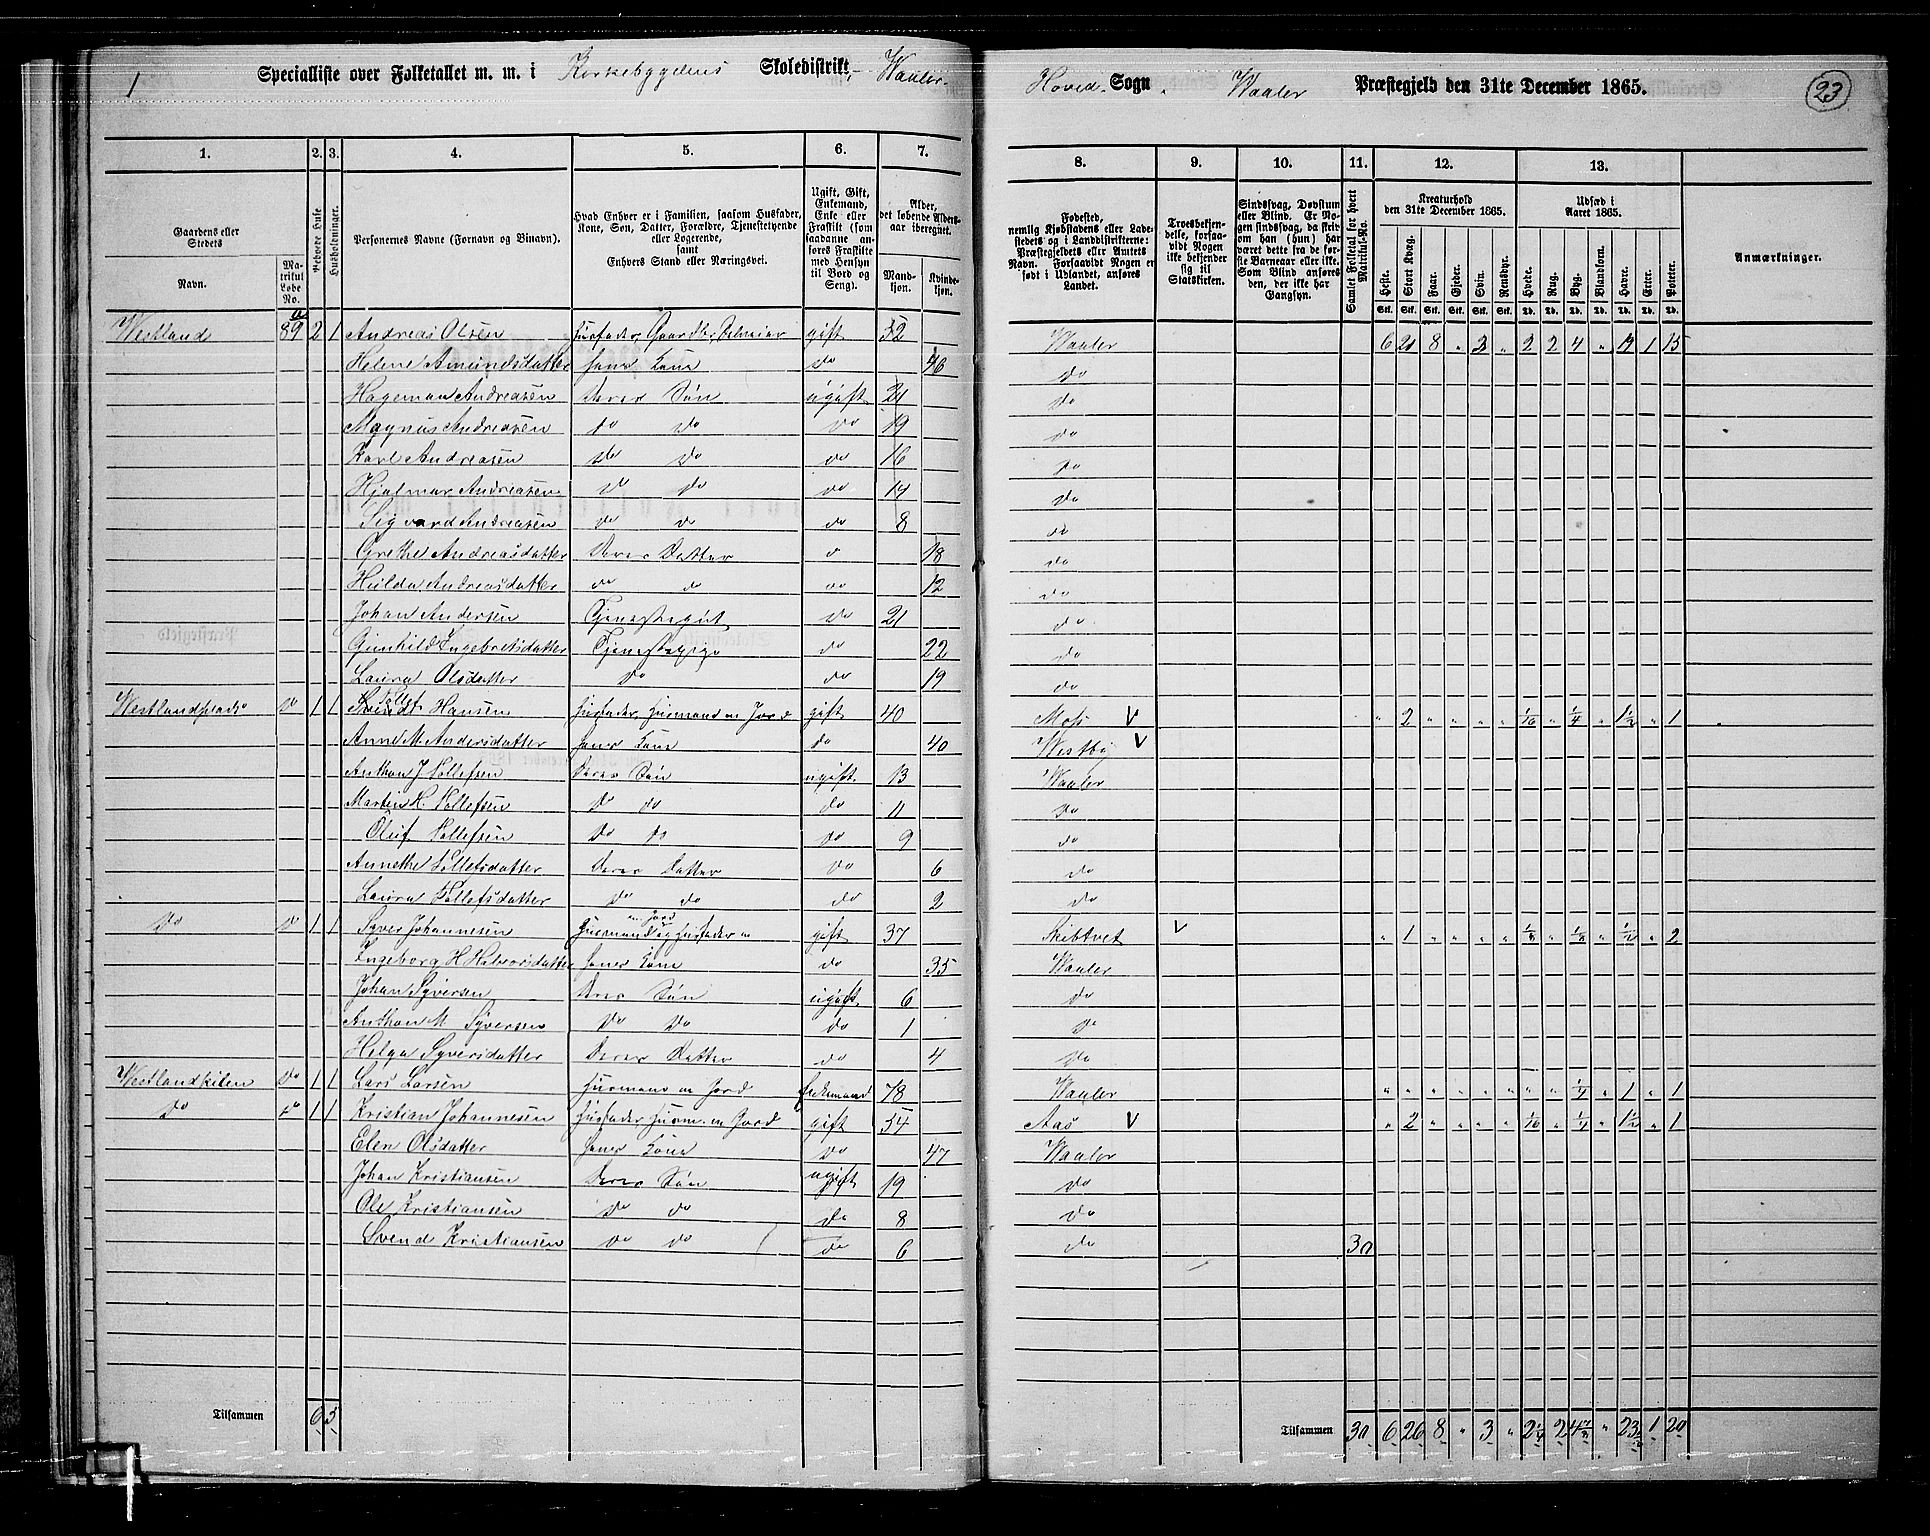 1 Specialliste over Folketallet m. m. i Kirkebygdens Skoledistrikt, Waaler Hoved Sogn, Waaler Præstegjeld den 31te December 1865. 23
1. 2. 3. 4. 5. 6. 7. 8. 9. 10. 11. 12. 13.
Gaardens eller Stedets
Navn.
Matrikul Løbe No.
Beboede Huse
Husholdninger.
Personernes Navne (Fornavn og Binavn).
Hvad Enhver er i Familien, saasom Husfader, Kone, Søn, Datter, Forældre, Tjenestetyende eller Logerende, samt Enhvers Stand eller Næringsvei.
Ugift, Gift, Enkemand, Enke eller Fraskilt (som saadanne anføres Fraskilte med Hensyn til Bord og Seng).
Alder, det løbende Alders-aar iberegnet.
Mand-kjøn.
Kvinde-kjøn.
Fødested, nemlig Kjøbstadens eller Ladestedets og i Landdistrikterne: Præstegjeldets eller Amtets Navn. Forsaavidt Nogen er født i Udlandet, anføres Landet.
Troesbekjendelse, forsaavidt Nogen ikke bekjender sig til Statskirken.
Sindssvag, Døvstum eller Blind. Er Nogen sindssvag, da skriv om han (hun) har været dette fra de første Barneaar eller ikke. Som Blind anføres den, der ikke har Gangsyn.
Samlet Folketal for hvert Matrikul-No.
Kreaturhold den 31te December 1865.
Heste. Stort Kvæg. Faar. Gjeder. Svin. Rensdyr.
Stk. Stk. Stk. Stk. Stk. Stk.
Udsæd i Aaret 1865.
Hvede. Rug. Byg. Blandkorn. Havre. Erter. Poteter.
Td. Td. Td. Td. Td. Td. Td.
Anmærkninger.
Westland 89 a 2 1 Andreas Olsen Husfader, Gaardb, Selveier gift 52 Waaler 6 21 8 " 3 " 2 2 4 " 19 1 15
Helene Amundsdatter hans Kone do 46 do
Hageman Andreasen Deres Søn ugift 21 do
Magnus Andreasen do do do 19 do
Karl Andreasen do do do 16 do
Hjalmar Andreasen do do do 14 do
Sigvard Andreasen do do do 8 do
Grethe Andreasdatter Deres Datter do 18 do
Hulda Andreasdatter do do do 12 do
Johan Andersen Tjenestegut do 21 do
Gunhild Ingebretsdatter Tjenestepige do 22 do
Laura Olsdatter do do 19 do
Westlandplads do 1 1 Hansen Husfader, Husmand m Jord gift 40 Moss V " 2 " " " " 1/16 " 1/4 " 1 1/2 " 1
Anne M. Andersdatter hans Kone do 40 Westby V
Anthon J Tollefsen Deres Søn ugift 13 Waaler
Marten H. Tollefsen do do do 11 do
Oluf Tollefsen do do do 9 do
Annethe Tollefsdatter Deres Datter do 6 do
Laura Tollefsdatter do do do 2 do
do do 1 1 Syver Johannesen Husmand m Jord og Husfader gift 37 Skibtvet V " 1 " " " " 1/8 " 1/8 " 1/2 " 2
Ingeborg H Halvorsdatter hans Kone do 35 Waaler
Johan Syversen Deres Søn ugift 6 do
Anthon M Syversen do do do 1 do
Helga Syversdatter Deres Datter do 4 do
Westlandkilen do 1 1 Lars Larsen Husmand m Jord Enkemand 78 Waaler " " " " " " " " 1/4 " 1 " 1
do do 1 1 Kristian Johannesen Husfader Husm. m Jord gift 54 Aas V " 2 " " " " 1/16 " 1/4 " 1 1/2 " 1
Elen Olsdatter hans Kone do 47 Waaler
Johan Kristiansen Deres Søn ugift 19 do
Ole Kristiansen do do do 8 do
Svend Kristiansen do do do 6 do 30
Tilsammen 6 5 Tilsammen 30 6 26 8 " 3 " 2 1/4 2 4 7/8 " 23 1/2 1 20